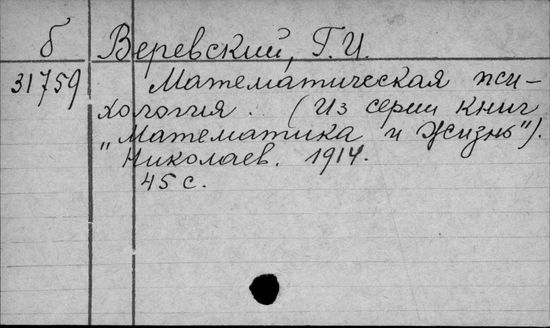 б Веревский, Г. И.
31759 Математическая пси-
хология. (Из серии книг
„Математика и Жизнь").
Николаев. 1914.
45 с.